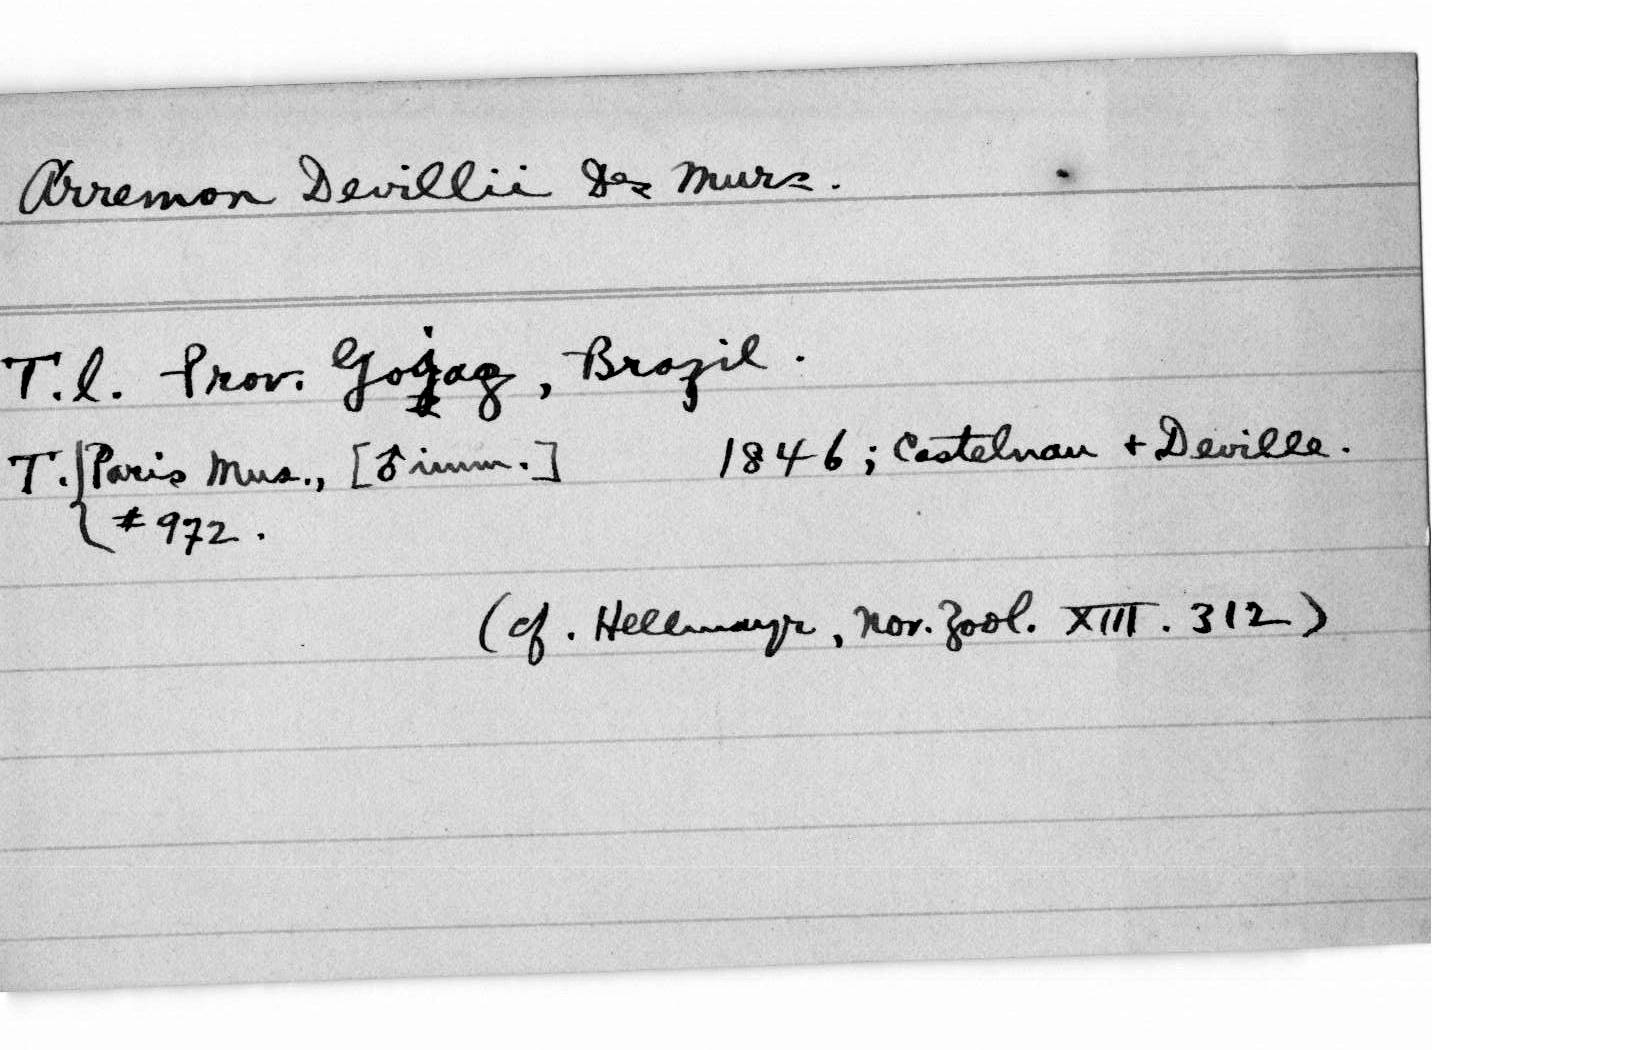 Arremon Devillii Des Murs.
T.l. Prov. Gojaz, Brazil.
T. {Paris Mus., [♂ imm.] 1846; Castelnau + Deville.
#972.
(cf. Hellmayr, Nov. Zool. XIII. 312)